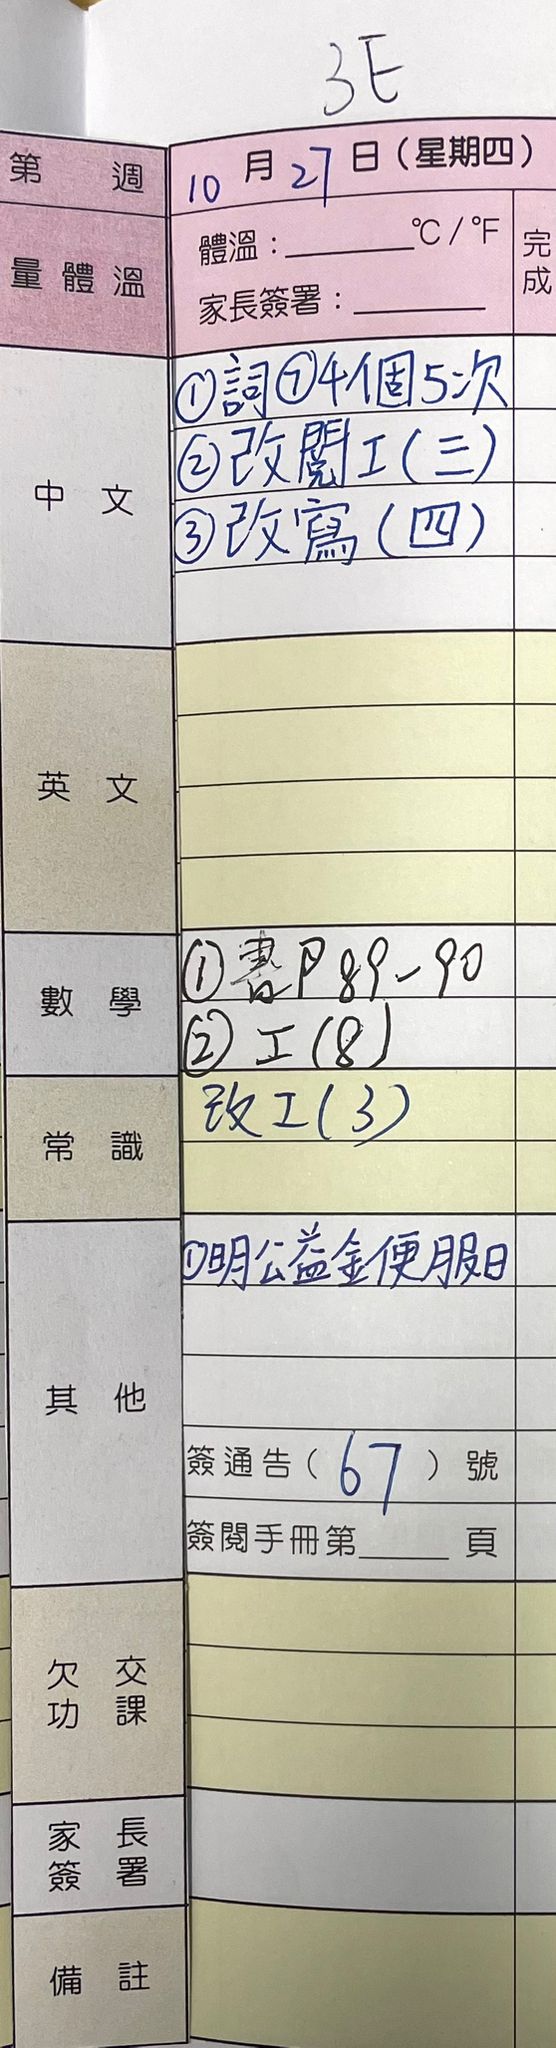 3E
第 週
10 月 27 日(星期四)
量體溫
體溫:______°C/°F
家長簽署:______
完成
中文
①詞⑦4個5次
②改閱工(三)
③改寫(四)
英文
數學
①書P89-90
②工(8)
常識
改工(3)
其他
①明公益金便服日
簽通告(67)號
簽閱手冊第____頁
欠交
功課
家長
簽署
備註